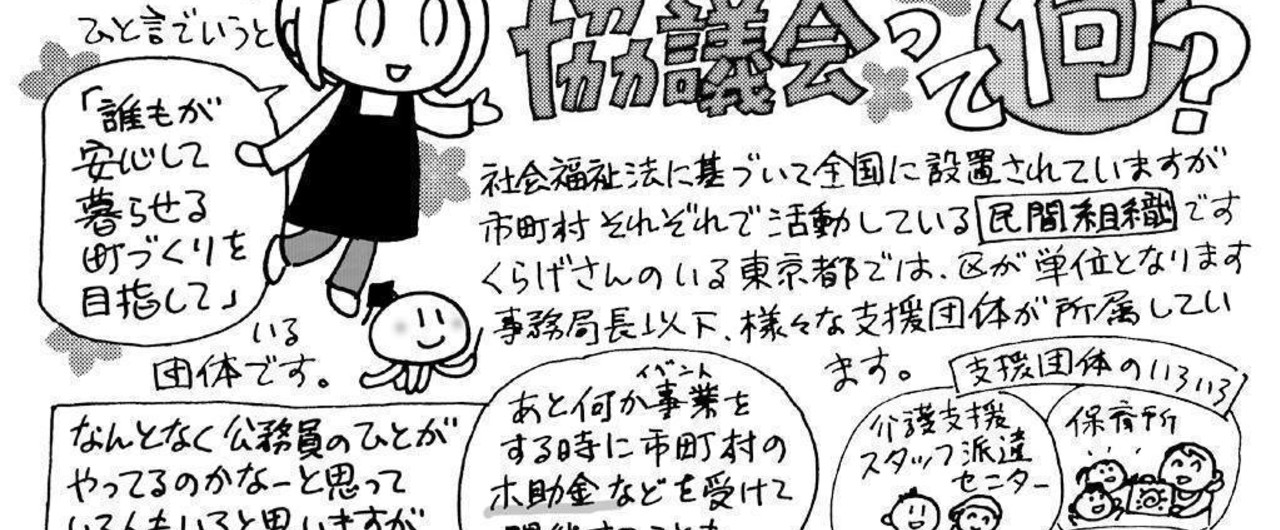 ひと言でいうと
協議会って何?
「誰もが
安心して
暮らせる
町づくりを
目指して」
いる
団体です。
社会福祉法に基づいて全国に設置されていますが
市町村それぞれで活動している民間組織です
くらげさんのいる東京都では、区が単位となります
事務局長以下、様々な支援団体が所属してい
ます。
支援団体のいろいろ
介護支援
スタッフ派遣
センター
保育所
なんとなく公務員のひとが
やってるのかなーと思って
いる人もいると思いますが
イベント
あと何か事業を
する時に市町村の
補助金などを受けて